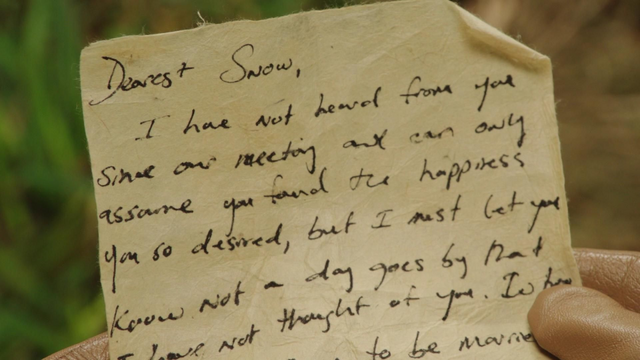 Dearest Snow,
I have not heard from you
since our meeting and can only
assume you found the happiness
you so desired, but I must let you
know not a day goes by that
I have not thought of you.
to be